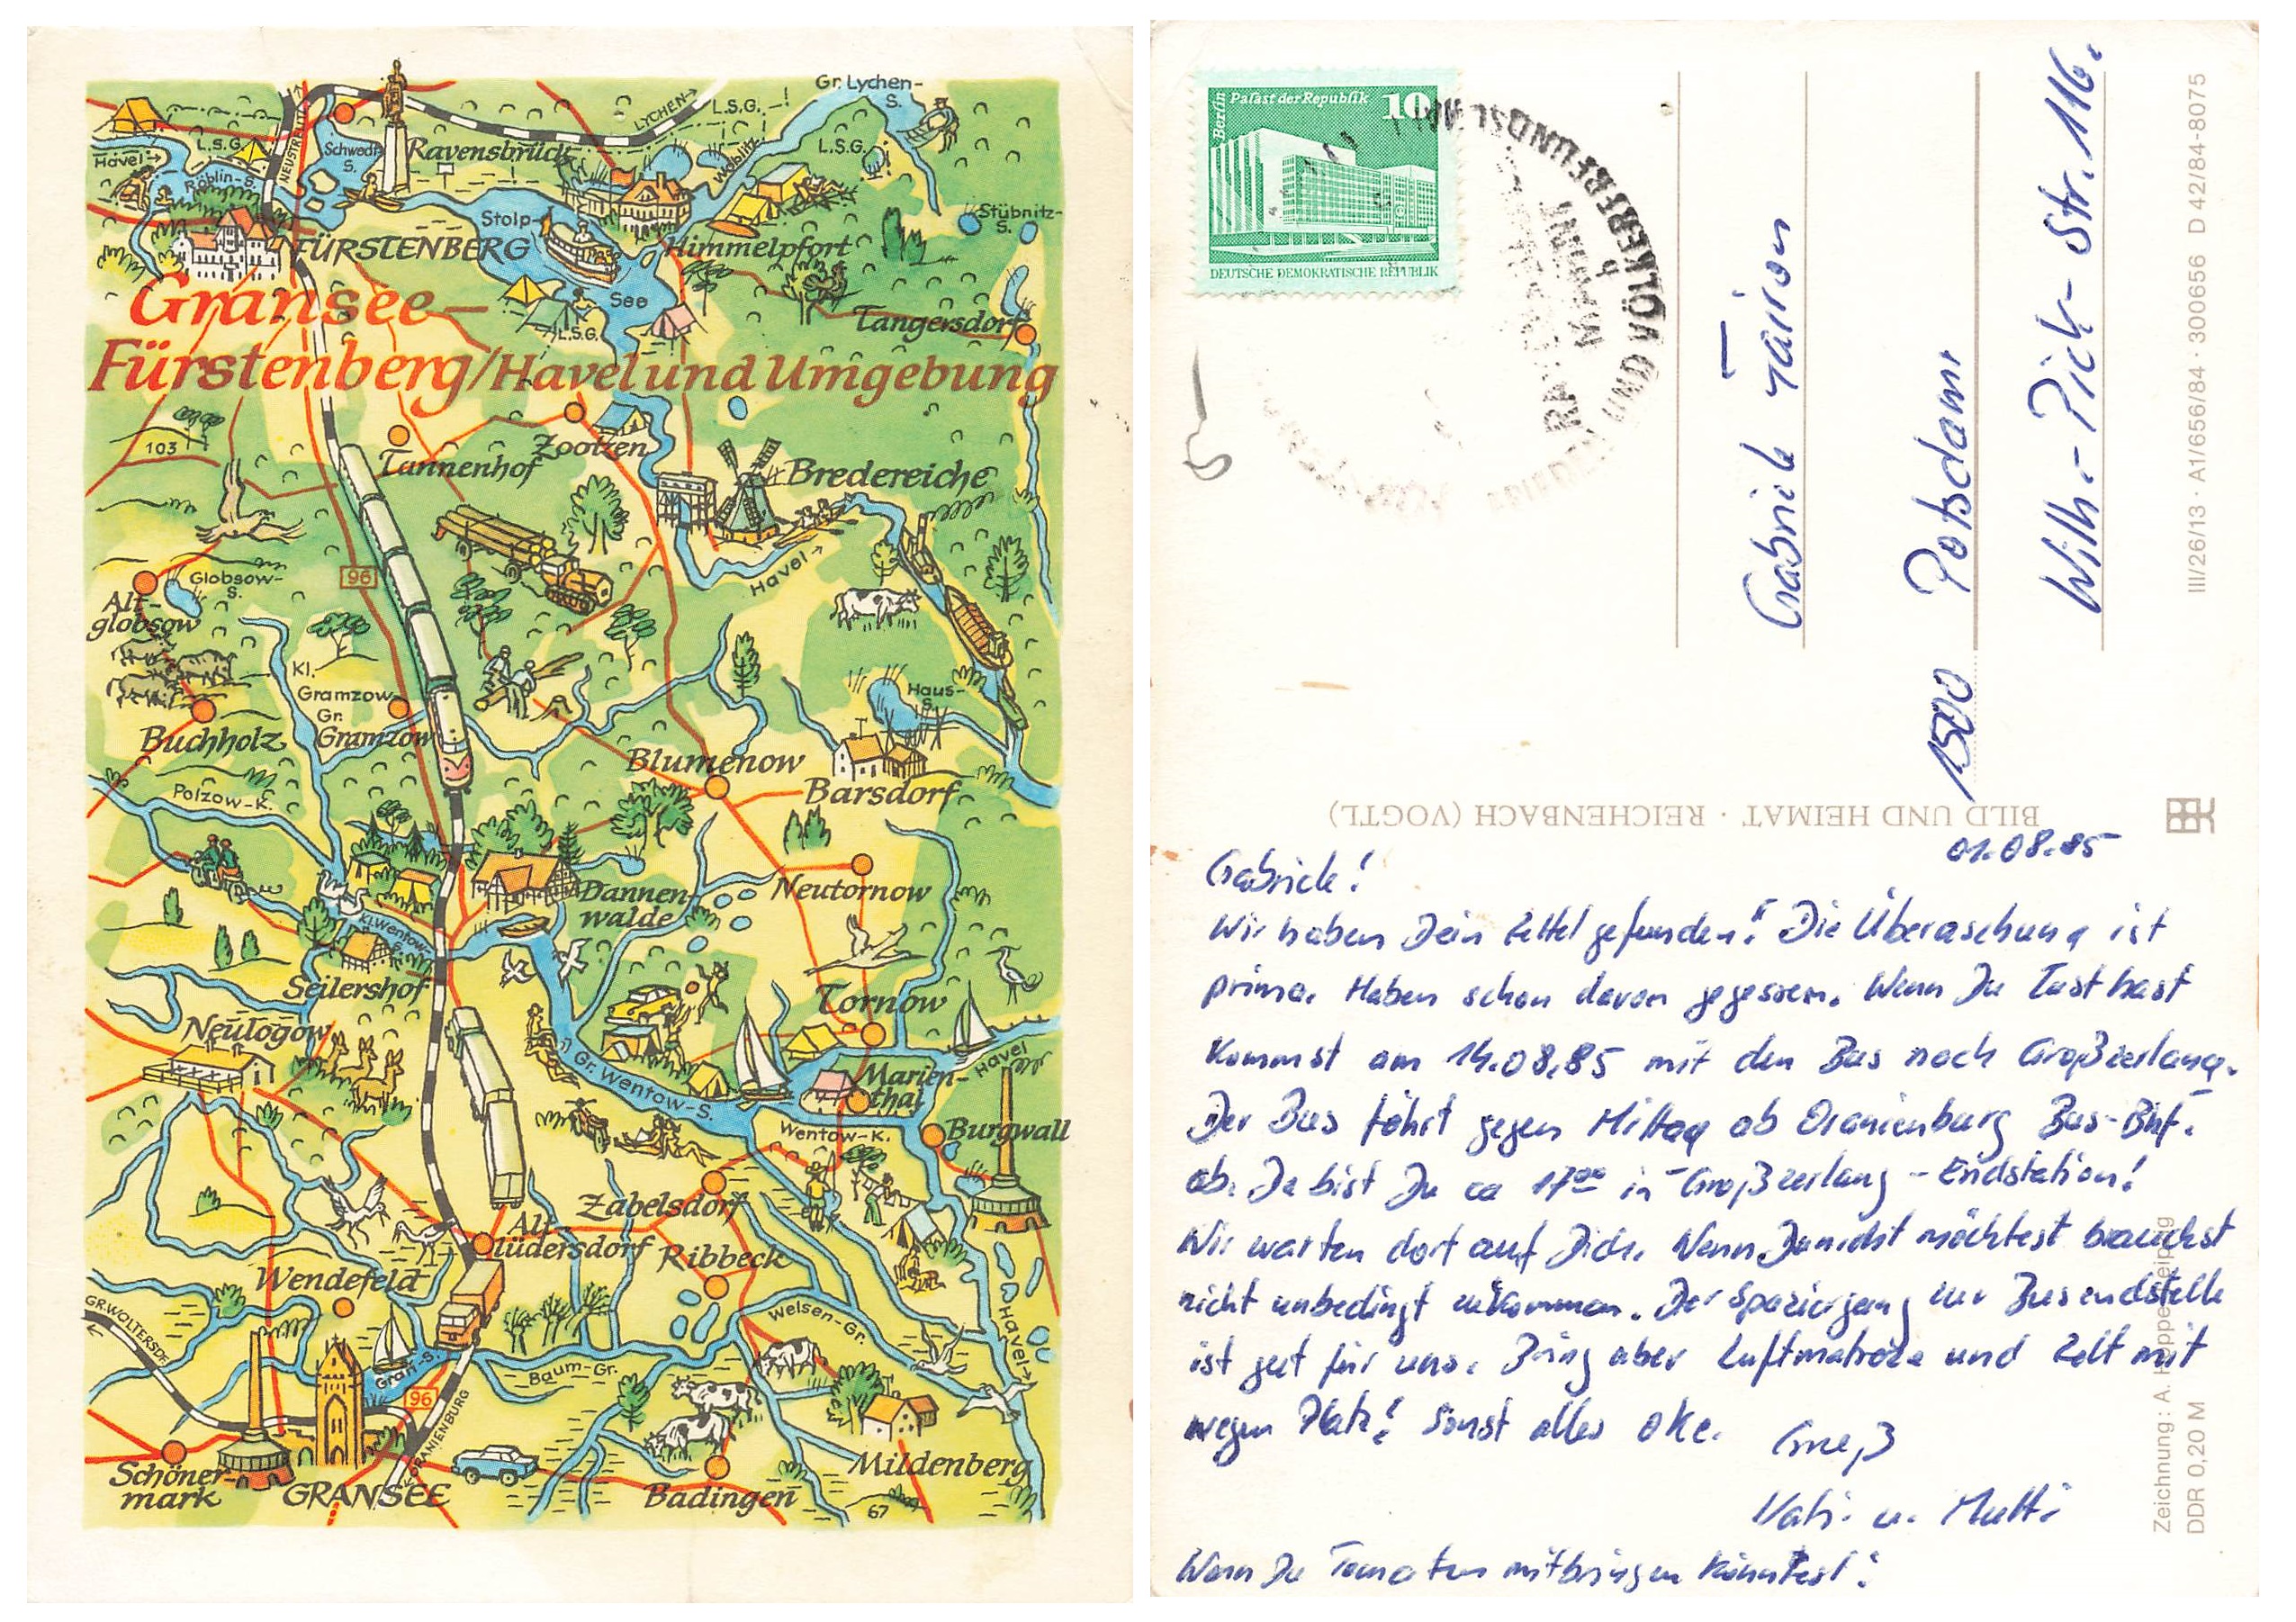 Gr. Lychen-
S.
LYCHEN
L.S.G.
NEUSTRELITZ
L.S.G.
Havel
Röblin-S.
Schwedt-
S.
Ravensbrück
Woblitz
L.S.G.
Stübnitz-
S.
Stolp-
See
FÜRSTENBERG
Himmelpfort
L.S.G.
Tangersdorf
Gransee-
Fürstenberg/Havel und Umgebung
103
Tannenhof
Zootzen
Bredereiche
Havel
96
Globsow-
S.
Alt-
globsow
Kl.
Gramzow
Gr.
Gramzow
Haus-
S.
Buchholz
Blumenow
Barsdorf
Polzow-K.
Dannen-
walde
Neutornow
Kl. Wentow-
S.
Seilershof
Tornow
Neulögow
Gr. Wentow-S.
Havel
Marien-
thal
Wentow-K.
Burgwall
Zabelsdorf
Alt-
lüdersdorf
Ribbeck
Wendefeld
GR. WOLTERSDF.
Welsen-Gr.
Havel
Gran-S.
Baum-Gr.
96
ORANIENBURG
Schöner-
mark
GRANSEE
Badingen
Mildenberg
67
Berlin
Palast der Republik 10
DEUTSCHE DEMOKRATISCHE REPUBLIK
UND VÖLKERFREUNDSCHAFT
b
Gabriele
1500 Potsdam
Wilh.-Pick-Str. 116.
III/26/13 · A1/656/84 · 300656 D 42/84-8075
BILD UND HEIMAT · REICHENBACH (VOGTL)
01.08.85
Gabriele!
Wir haben Dein Zettel gefunden! Die Überaschung ist
prima. Haben schon davon gegessen. Wenn Du Lust hast
kommst am 14.08.85 mit den Bus nach Großzerlang.
Der Bus fährt gegen Mittag ab Oranienburg Bus-Bhf.
ab. Da bist Du ca 17⁰⁰ in Großzerlang - Endstation!
Wir warten dort auf Dich. Wenn Du nicht möchtest brauchst
nicht unbedingt zukommen. Der Spaziergang zur Busendstelle
ist gut für uns. Bring aber Luftmatraze und Zelt mit
wegen Platz! Sonst alles oke.
Gruß
Vati u. Mutti
Wenn Du Tomaten mitbringen könntest!
Zeichnung: A. Hoppe, Leipzig
DDR 0,20 M